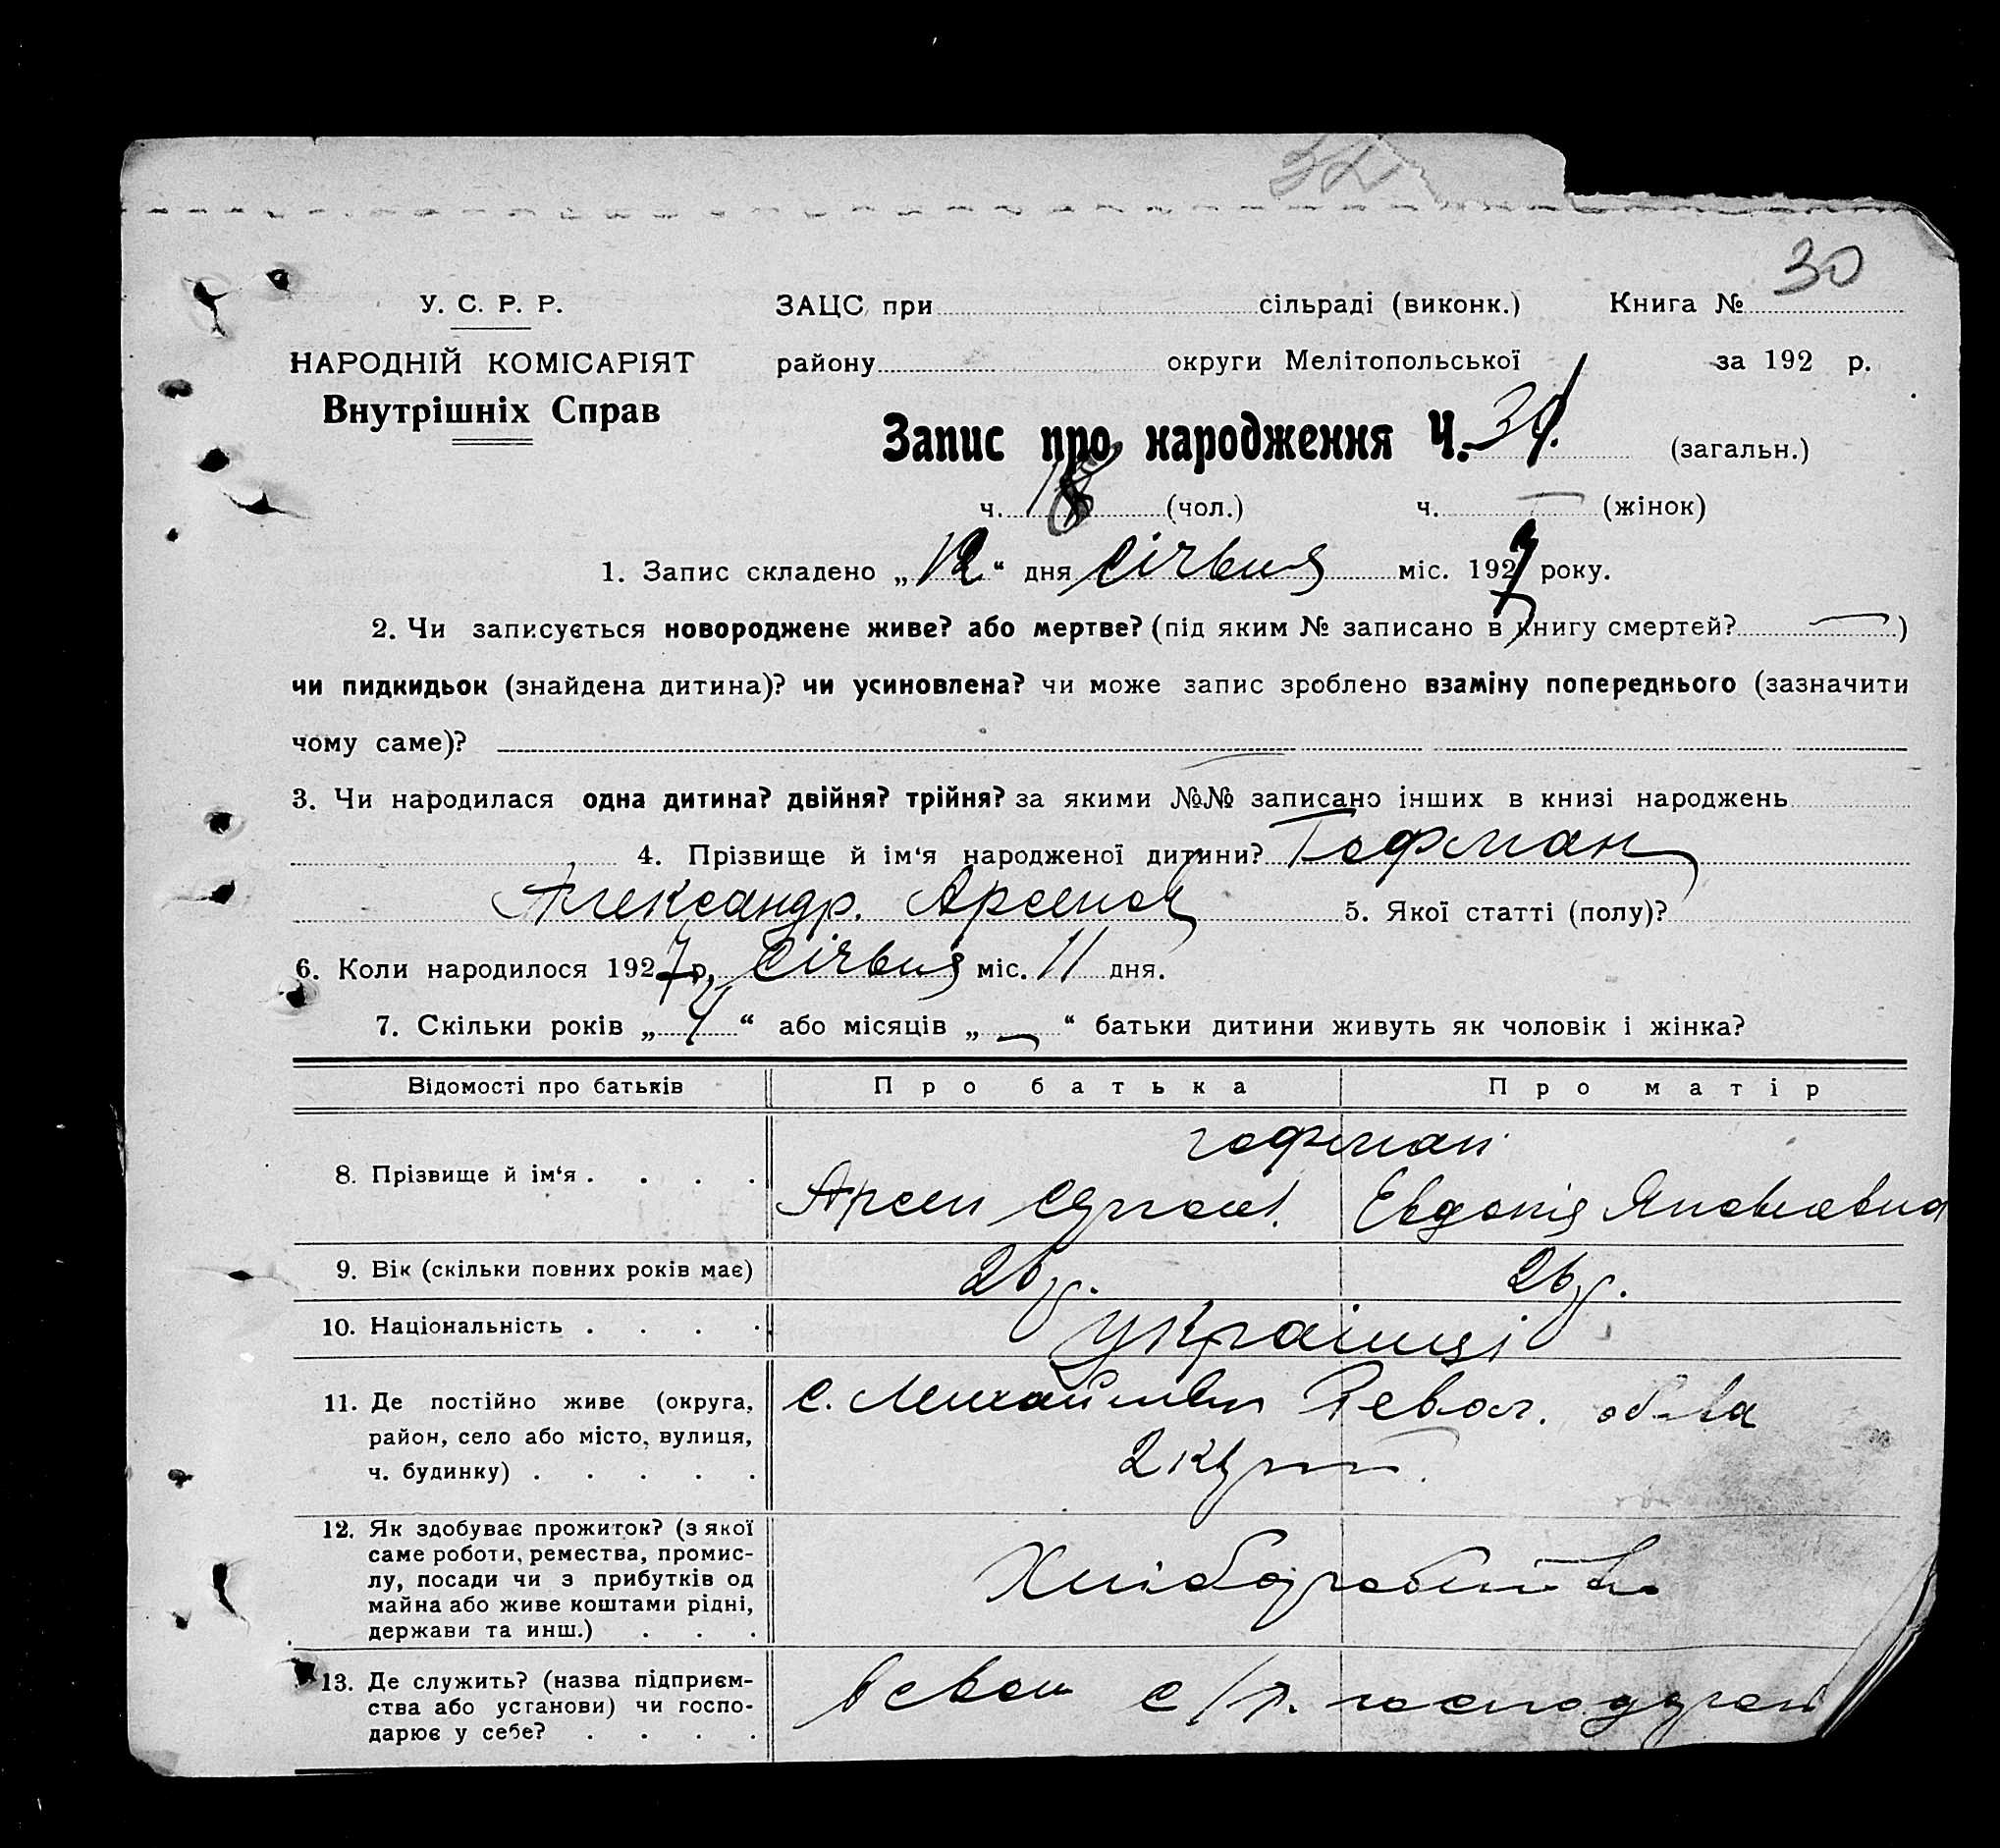 32
30
У. С. Р. Р.
ЗАЦС при сільраді (виконк.) Книга №
НАРОДНІЙ КОМІСАРІЯТ
району округи Мелітопольської за 192 р.
Внутрішніх Справ
Запис про народження Ч. (загальн.)
ч. 18 (чол.) ч. — (жінок)
1. Запис складено „12“ дня Січьня міс. 1927 року.
2. Чи записується новороджене живе? або мертве? (під яким № записано в книгу смертей? — )
чи пидкидьок (знайдена дитина)? чи усиновлена? чи може запис зроблено взаміну попереднього (зазначити
чому саме)?
3. Чи народилася одна дитина? двійня? трійня? за якими №№ записано інших в книзі народжень
4. Прізвище й ім‘я народженої дитини? Гофман
Александр. Арсенов 5. Якої статті (полу)?
6. Коли народилося 1927 р. Січьня міс. 11 дня.
7. Скільки років „4“ або місяців „—“ батьки дитини живуть як чоловік і жінка?
Відомості про батьків Про батька Про матір
гофман
8. Прізвище й ім‘я . . . . Арсен Евдокія Яковлевна
9. Вік (скільки повних років має) 26 р. 26 р.
10. Національність . . . . українці
11. Де постійно живе (округа, с. Михайлівка Револ.
район, село або місто, вулиця, 2
ч. будинку) . . . . .
12. Як здобуває прожиток? (з якої
саме роботи, ремества, промис-
лу, посади чи з прибутків од Хліборобство
майна або живе коштами рідні,
держави та инш.) . . .
13. Де служить? (назва підприєм- в свом с/г.
ства або установи) чи госпо-
дарює у себе? . . . .